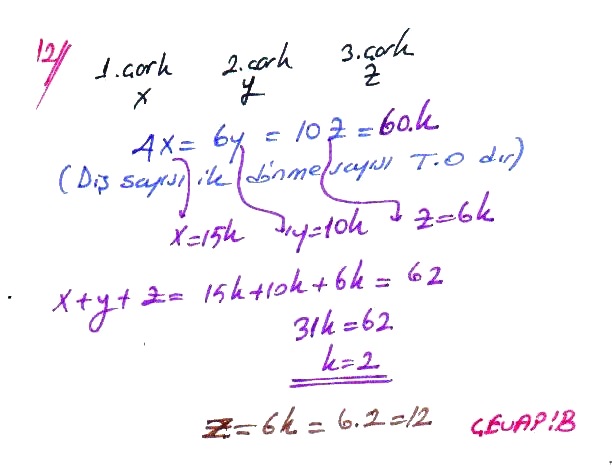 12//
1. çark 2. çark 3. çark
x y z
4x = 6y = 10z = 60.k
(Diş sayısı ile dönme sayısı T.O dır)
x=15k y=10k z=6k
x+y+z = 15k+10k+6k = 62
31k=62
k=2
z=6k = 6.2=12 CEVAP:B